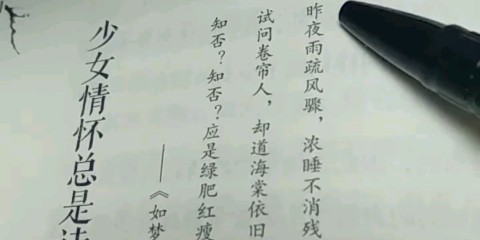 昨夜雨疏风骤，浓睡不消残
试问卷帘人，却道海棠依旧
知否？知否？应是绿肥红瘦
——《如梦
少女情怀总是